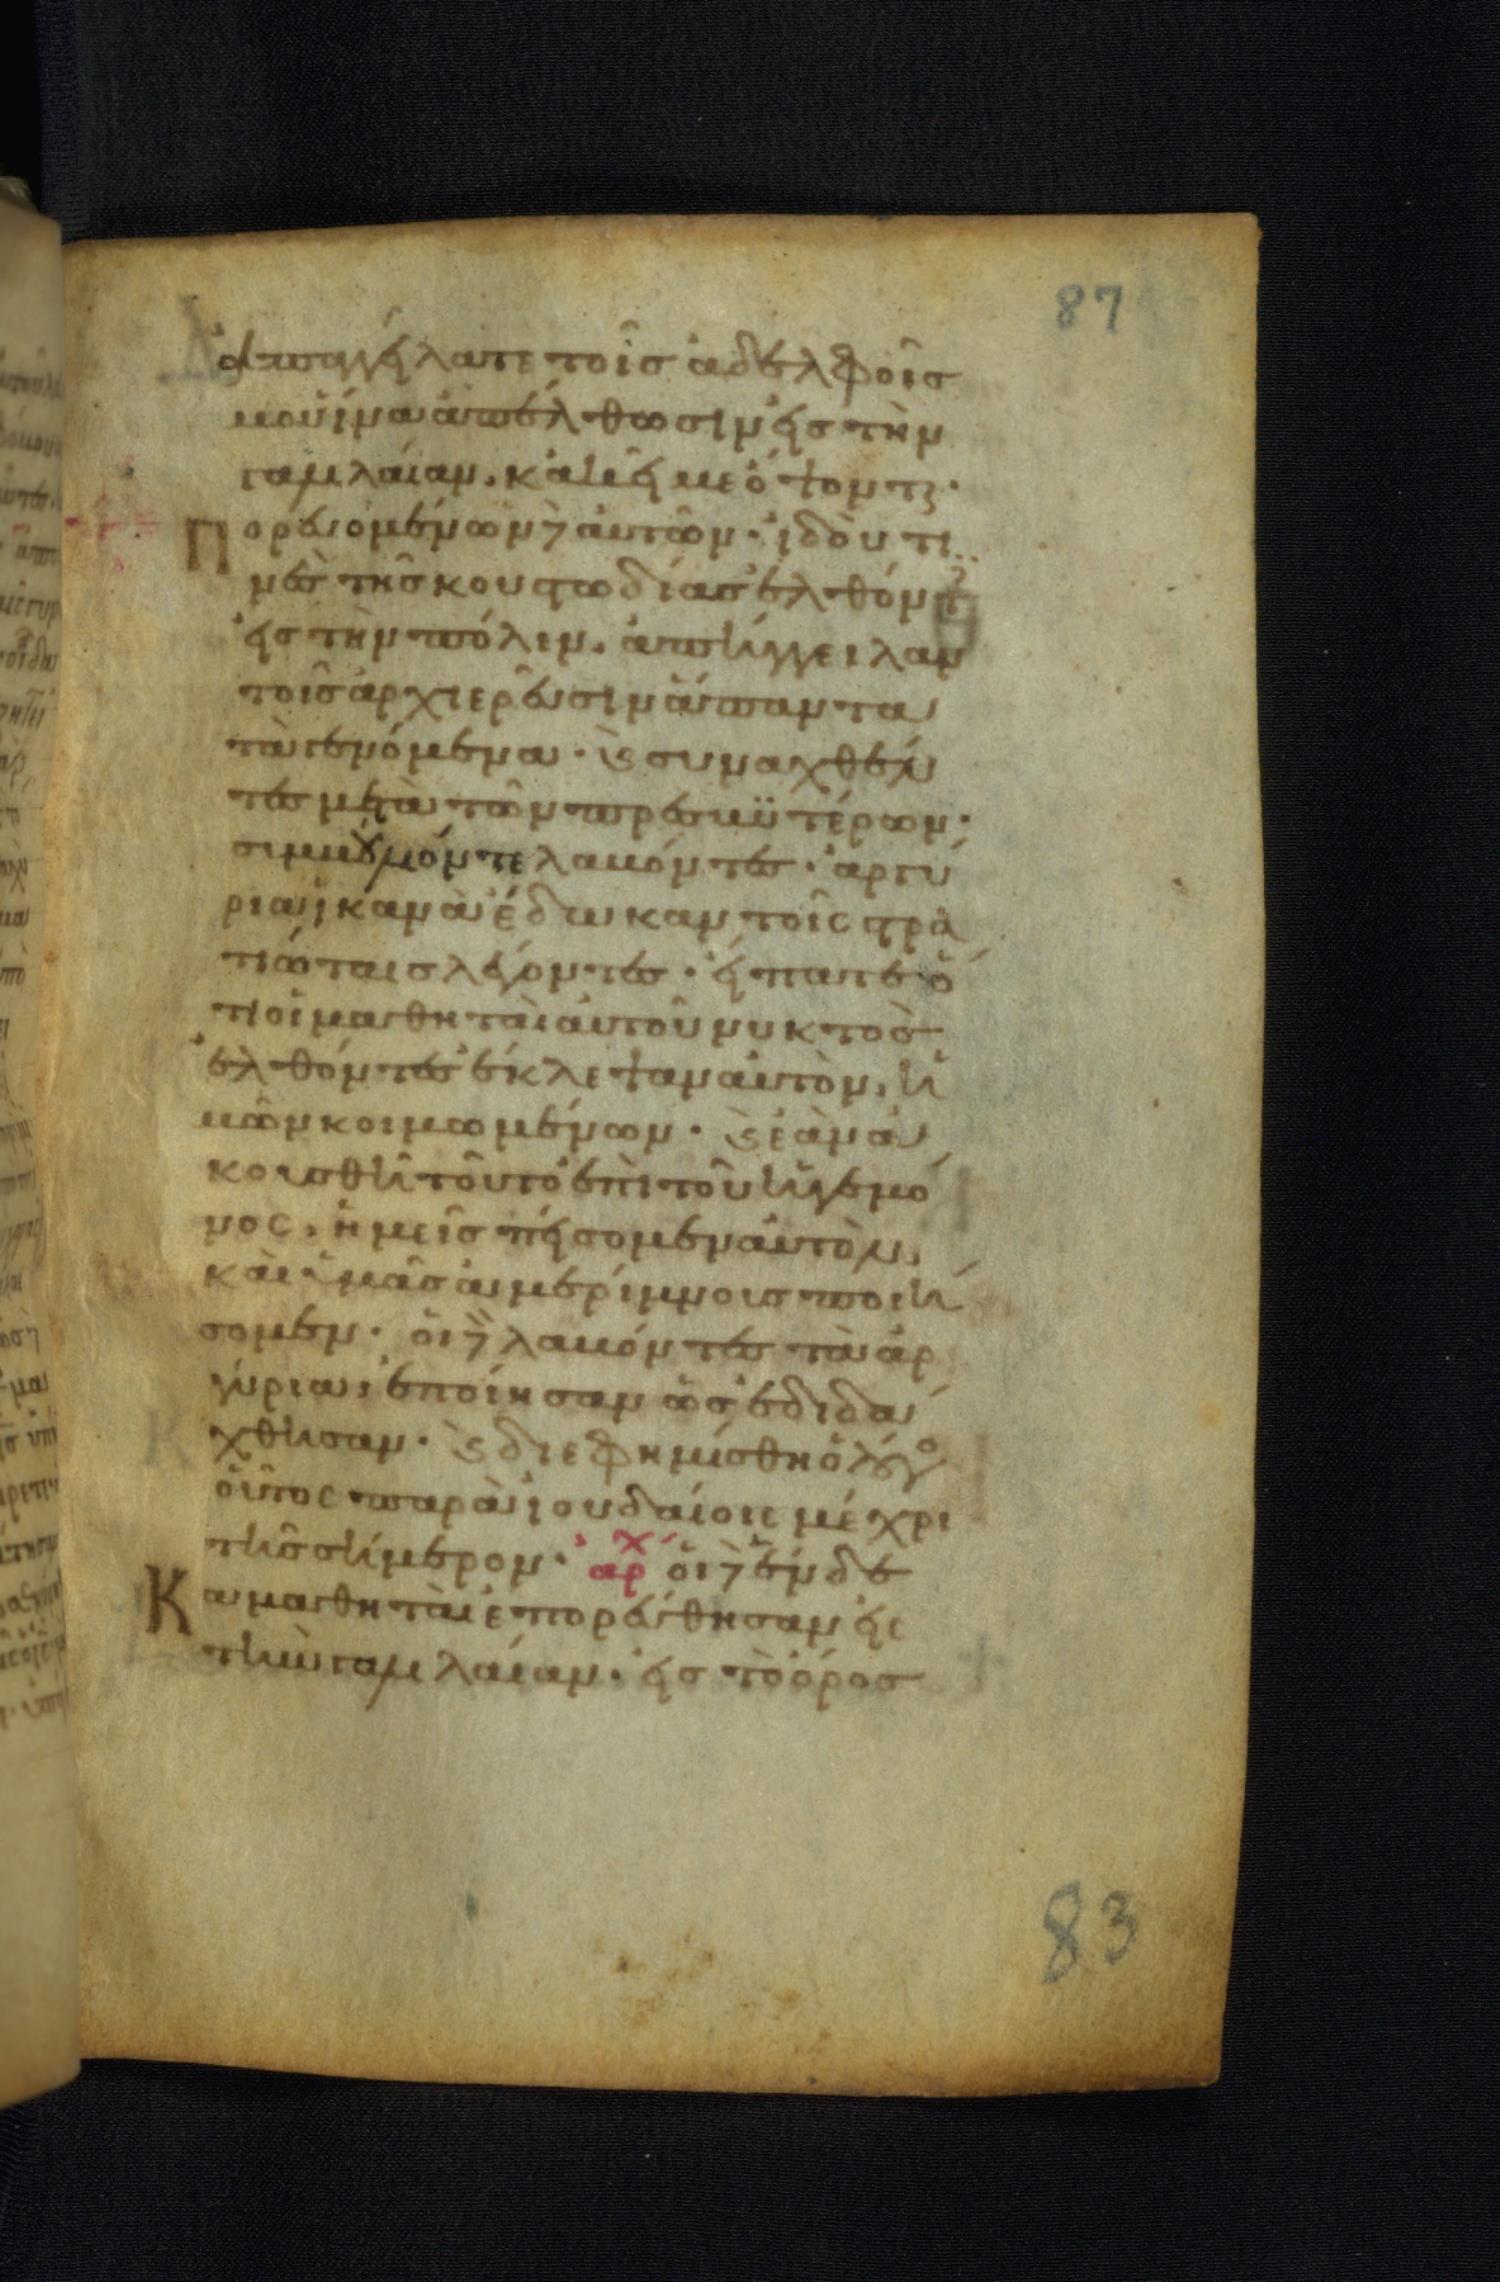 87
ἀπαγγείλατε τοῖς ἀδελφοῖς
μου ἵνα ἀπέλθωσιν εἰς τὴν
γαλιλαίαν, κἀκεῖ με ὄψονται·
Πορευομένων δὲ αὐτῶν· ἰδού τι
νες τῆς κουστωδίας ἐλθόντες
εἰς τὴν πόλιν, ἀπήγγειλαν
τοῖς ἀρχιερεῦσιν ἅπαντα
τὰ γενόμενα· καὶ συναχθέν
τες μετὰ τῶν πρεσβϋτέρων·
συμβούλιόν τε λαβόντες· ἀργύ
ρια ἱκανὰ ἔδωκαν τοῖς στρα
τιώταις λέγοντες· εἴπατε ὅ
τι οἱ μαθηταὶ αὐτοῦ νυκτὸς
ἐλθόντες ἔκλεψαν αὐτὸν, ἡ
μῶν κοιμωμένων· καὶ ἐὰν ἀ
κουσθῆ τοῦτο ἐπὶ τοῦ ἡγεμό
νος, ἡμεῖς πείσομεν αὐτὸν,
καὶ ὑμᾶς ἀμερίμνους ποιή
σομεν· οἱ δὲ λαβόντες τὰ ἀρ
γύρια, ἐποίησαν ὡς ἐδιδά
χθησαν· καὶ διεφημίσθη ὁ λόγος
οὗτος παρὰ ἰουδαίοις μέχρι
τῆς σήμερον· ἀρχ οἱ δὲ ἕνδε
Κα μαθηταὶ ἐπορεύθησαν εἰς
τὴν γαλιλαίαν· εἰς τὸ ὄρος
83